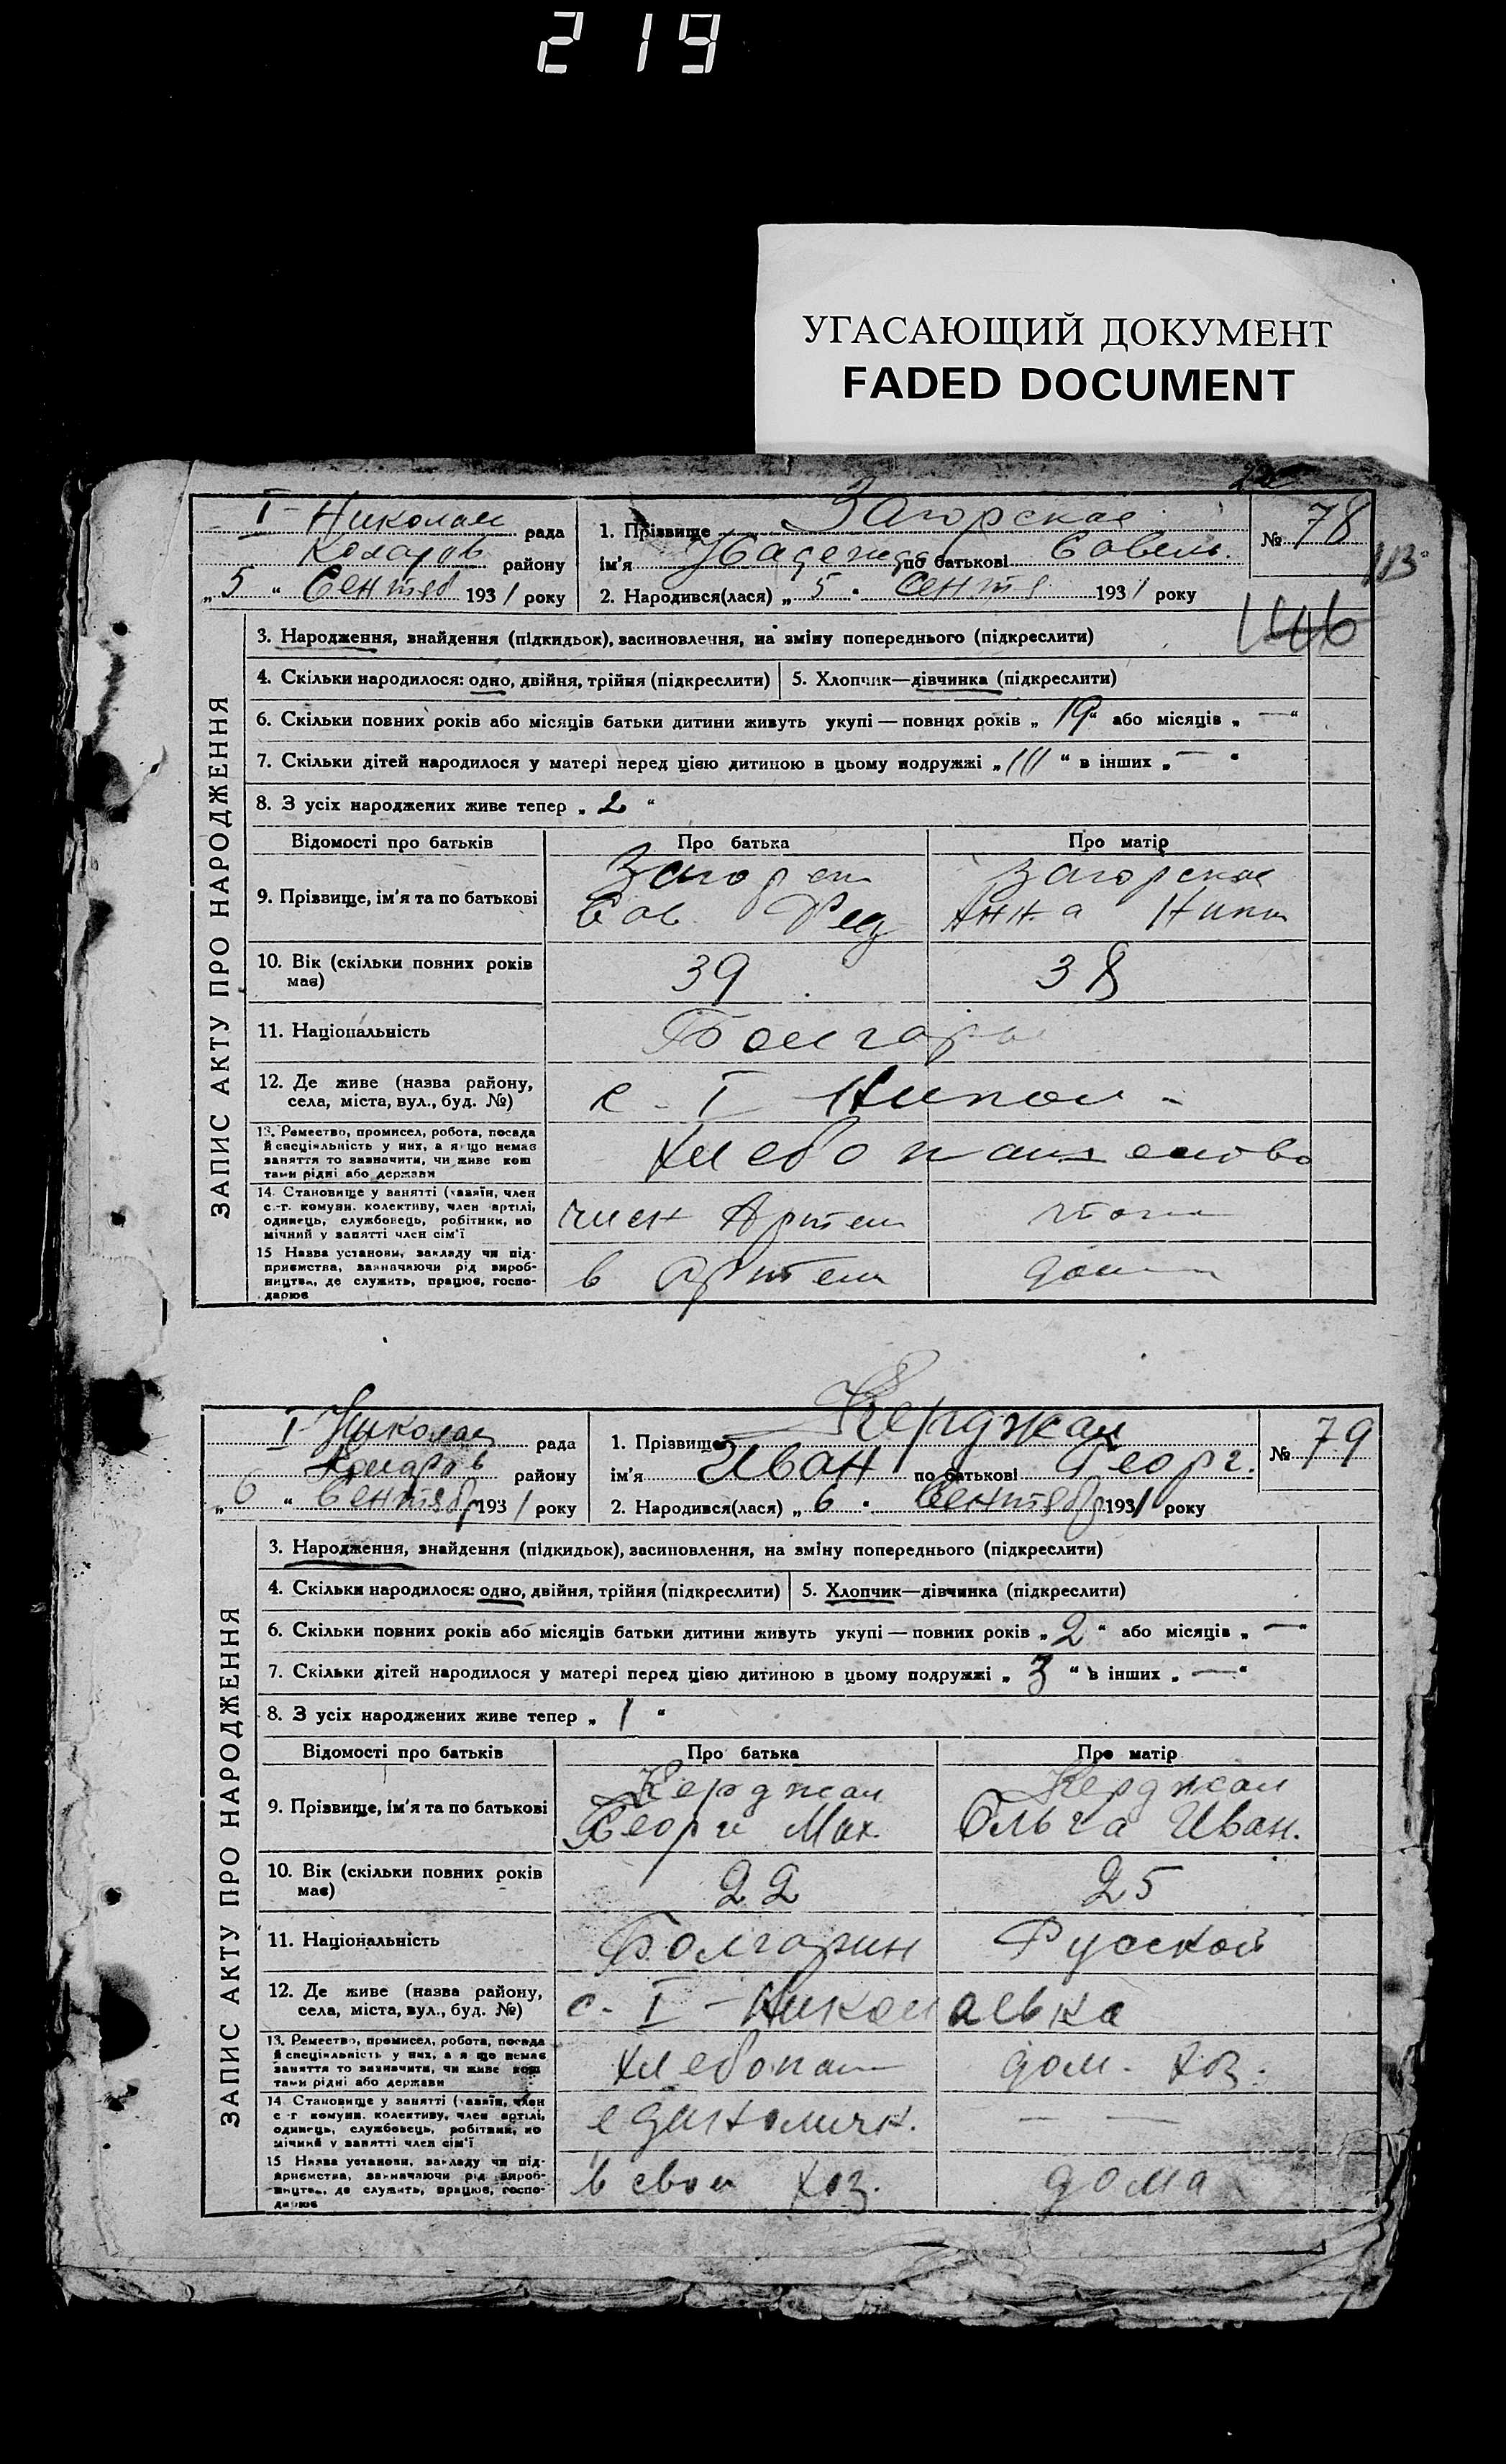 219
УГАСАЮЩИЙ ДОКУМЕНТ
FADED DOCUMENT
I - Николаев рада
району
„ 5 “ Сентяб 1931 року
1. Прізвище Загорская
ім'я Надежда по батькові Савель.
2. Народився(лася) „ 5 “ Сентя 1931 року
№ 78
113
146
ЗАПИС АКТУ ПРО НАРОДЖЕННЯ
3. Народження, знайдення (підкидьок), засиновлення, на зміну попереднього (підкреслити)
4. Скільки народилося: одно, двійня, трійня (підкреслити) 5. Хлопчик—дівчинка (підкреслити)
6. Скільки повних років або місяців батьки дитини живуть укупі — повних років „ 19 “ або місяців „ — “
7. Скільки дітей народилося у матері перед цією дитиною в цьому подружжі „ III “ в інших „ — “
8. З усіх народжених живе тепер „ 2 “
Відомості про батьків Про батька Про матір
9. Прізвище, ім'я та по батькові
Загорская
Сав. Анна
10. Вік (скільки повних років має) 39 38
11. Національність Болгары
12. Де живе (назва району, села, міста, вул., буд. №) с. I Никол -
13. Ремество, промисел, робота, посада
й спеціяльність у них, а якщо немає
заняття то зазначити, чи живе кош
тами рідні або держави
Хлебопашество
14. Становище у занятті (хазяїн, член
с.-г. комуни, колективу, член артілі,
одинець, службовець, робітник, по
мічний у занятті член сім'ї
член Артели
15 Назва установи, закладу чи під-
приємства, зазначаючи рід вироб-
ництва, де служить, працює, госпо-
дарює
в Артели дома
I - Николаев рада
району
„ 6 “ Сентябр 1931 року
1. Прізвище Керджал
ім'я Иван по батькові Георг.
2. Народився(лася) „ 6 “ Сентябр 1931 року
№ 79
ЗАПИС АКТУ ПРО НАРОДЖЕННЯ
3. Народження, знайдення (підкидьок), засиновлення, на зміну попереднього (підкреслити)
4. Скільки народилося: одно, двійня, трійня (підкреслити) 5. Хлопчик—дівчинка (підкреслити)
6. Скільки повних років або місяців батьки дитини живуть укупі — повних років „ 2 “ або місяців „ — “
7. Скільки дітей народилося у матері перед цією дитиною в цьому подружжі „ 3 “ в інших „ — “
8. З усіх народжених живе тепер „ 1 “
Відомості про батьків Про батька Про матір
9. Прізвище, ім'я та по батькові
Керджал Керджал
Георги Мих. Ольга Иван.
10. Вік (скільки повних років має) 22 25
11. Національність Болгарин Русской
12. Де живе (назва району, села, міста, вул., буд. №) с. I - Николаевка
13. Ремество, промисел, робота, посада
й спеціяльність у них, а якщо немає
заняття то зазначити, чи живе кош
тами рідні або держави
Хлебопаш дом. хоз.
14. Становище у занятті (хазяїн, член
с-г комуни, колективу, член артілі,
одинець, службовець, робітник, по
мічний у занятті член сім'ї
единоличн. — —
15 Назва установи, закладу чи під-
приємства, зазначаючи рід вироб-
ництва, де служить, працює, госпо-
дарює
в своем хоз. дома